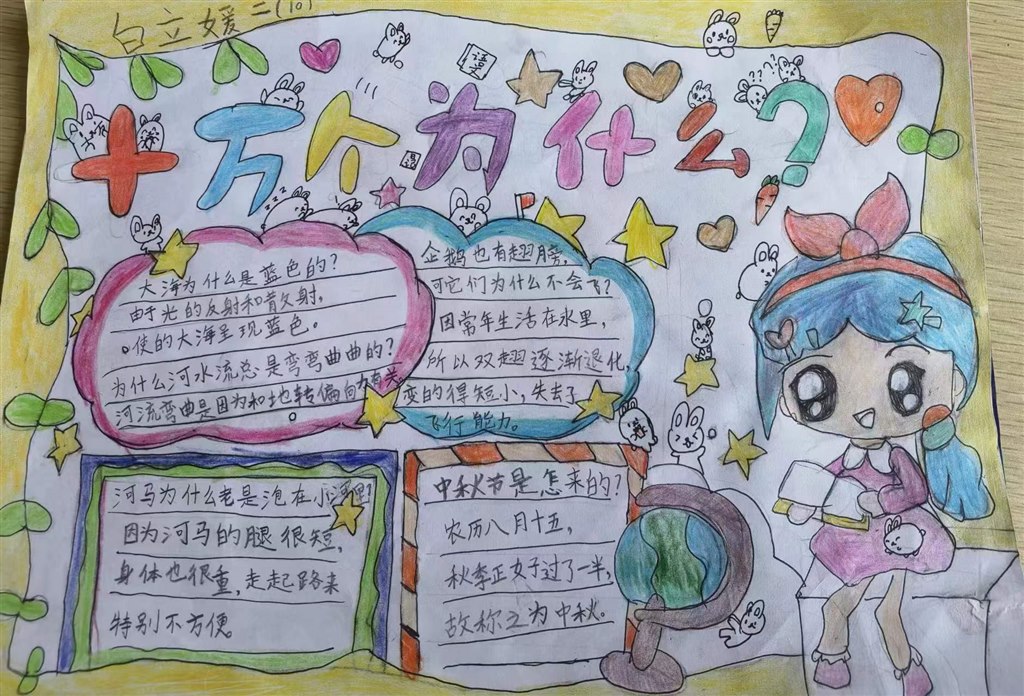 白立媛 二(10)
十万个为什么?
语文
大海为什么是蓝色的?
由于光的反射和散射,
使的大海呈现蓝色。
为什么河水流总是弯弯曲曲的?
河流弯曲是因为和地转偏向力有关
。
企鹅也有翅膀,
可它们为什么不会飞?
因常年生活在水里,
所以双翅逐渐退化,
变的得短小,失去了
飞行能力。
河马为什么老是泡在小河里?
因为河马的腿很短,
身体也很重,走起路来
特别不方便。
中秋节是怎来的?
农历八月十五,
秋季正好过了一半,
故称之为中秋。